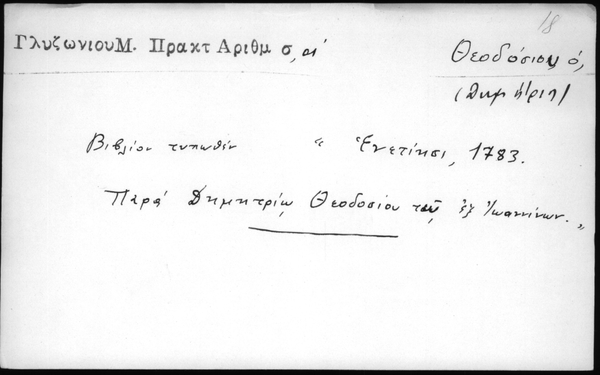 18
ΓλυζωνιουΜ. Πρακτ Αριθμ σ, αʹ
Θεοδόσιου, ὁ,
(Δημήτρι)
Βιβλίον τυπωθὲν " Ἐνετίησι, 1783.
Παρὰ Δημητρίῳ Θεοδοσίου τοῦ ἐξ Ἰωαννίνων. "